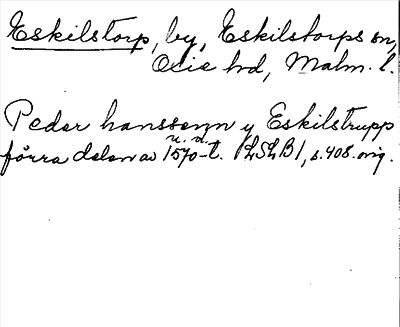 Eskilstorp, by, Eskilstorps sn,
Oxie hd, Malm. l.
Peder hanssenn y Eskilstrupp
u. d.
förra delen av 1570-t. LSLB1, s. 408. orig.